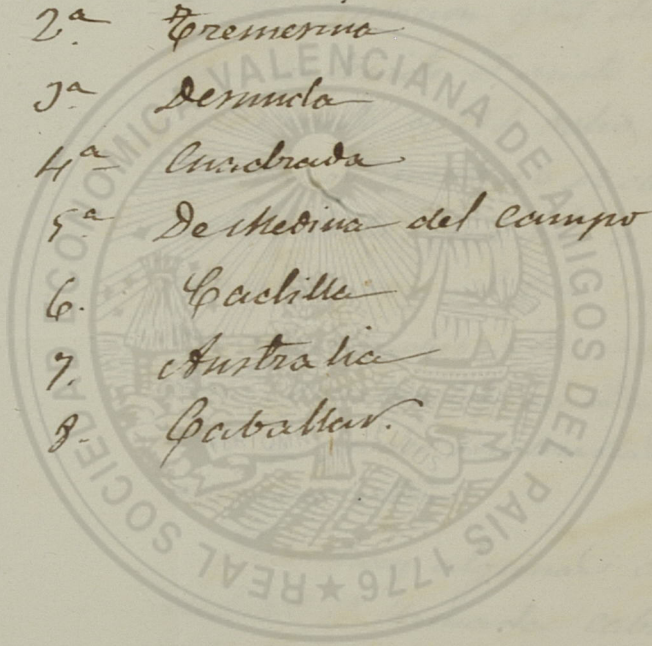 2ª Tremesina
3ª Desnuda
4ª Cuadrada
5ª De Medina del Campo
6. Cadilla
7. Australia
8. Caballar.
REAL SOCIEDAD ECONOMICA VALENCIANA DE AMIGOS DEL PAIS 1776 ★